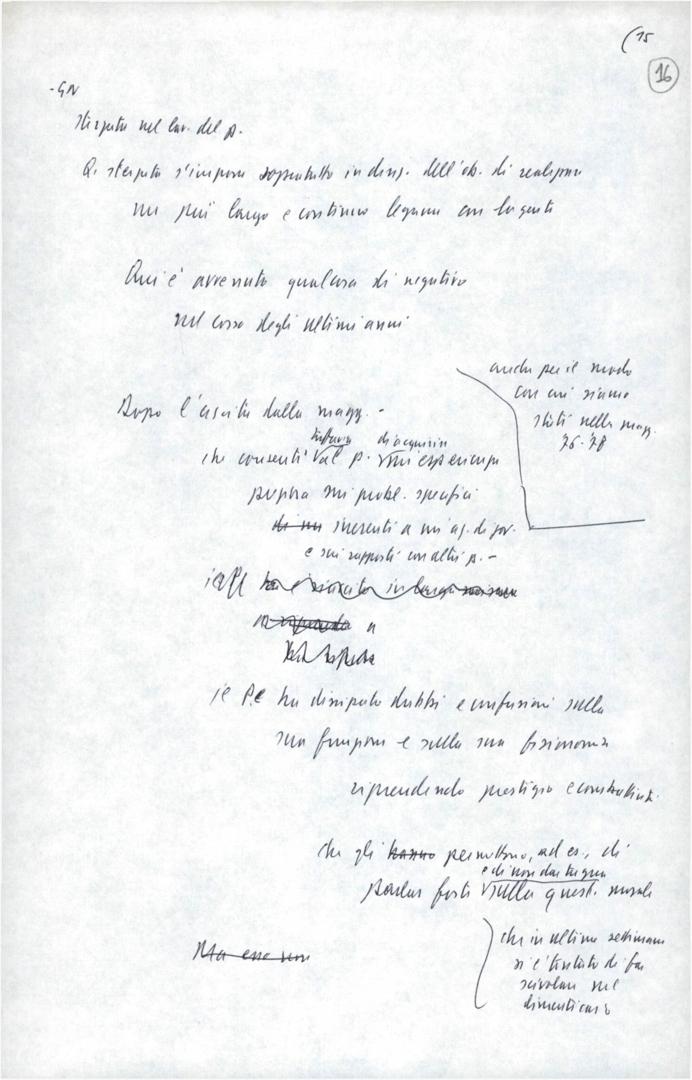 (15
16
-GN
nel lav. del p.
Q. s'impone soprattutto in direz. dell'ob. di realizzare
un più largo e continuo legame con la gente
Qui è avvenuto qualcosa di negativo
nel corso degli ultimi anni
anche per il modo
con cui siamo
stati nella magg.
76-78
Dopo l'uscita dalla magg. -
tuttavia di acquisire
che consentì al p. un'esperienza
sui probl. specifici
di un inerenti a un'az. di gov.
e sui rapporti con altri p. -
il P
a
il PC ha dissipato dubbi e confusioni sulla
sua funzione e sulla sua fisionomia
riprendendo prestigio e combattività
che gli hanno permettono, ad es., di
e di non dar tregua
parlar forte sulla quest. morale
che in ultime settimane
si è tentato di far
scivolare nel
dimenticatoio
Ma esse non